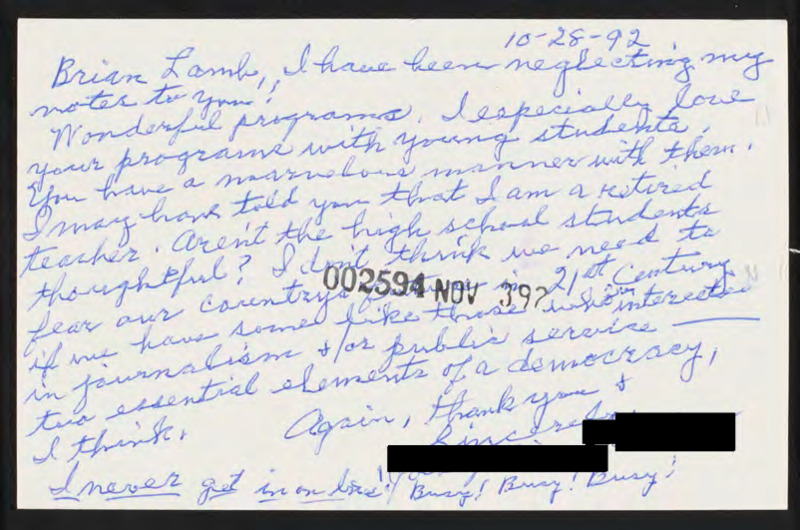 10-28-92
Brian Lamb, I have been neglecting my
notes to you!
Wonderful programs. I especially love
your programs with young students.
You have a marvelous manner with them.
I may have told you that I am a retired
teacher. Aren't the high school students
thoughtful? I don't think we need to
fear our country's in 21st Century
002594 NOV 392
if we have some like those who interested
in journalism &/or public service —
two essential elements of a democracy,
I think.
Again, thank you &
Sincerely
I never get in on line! Busy! Busy! Busy!